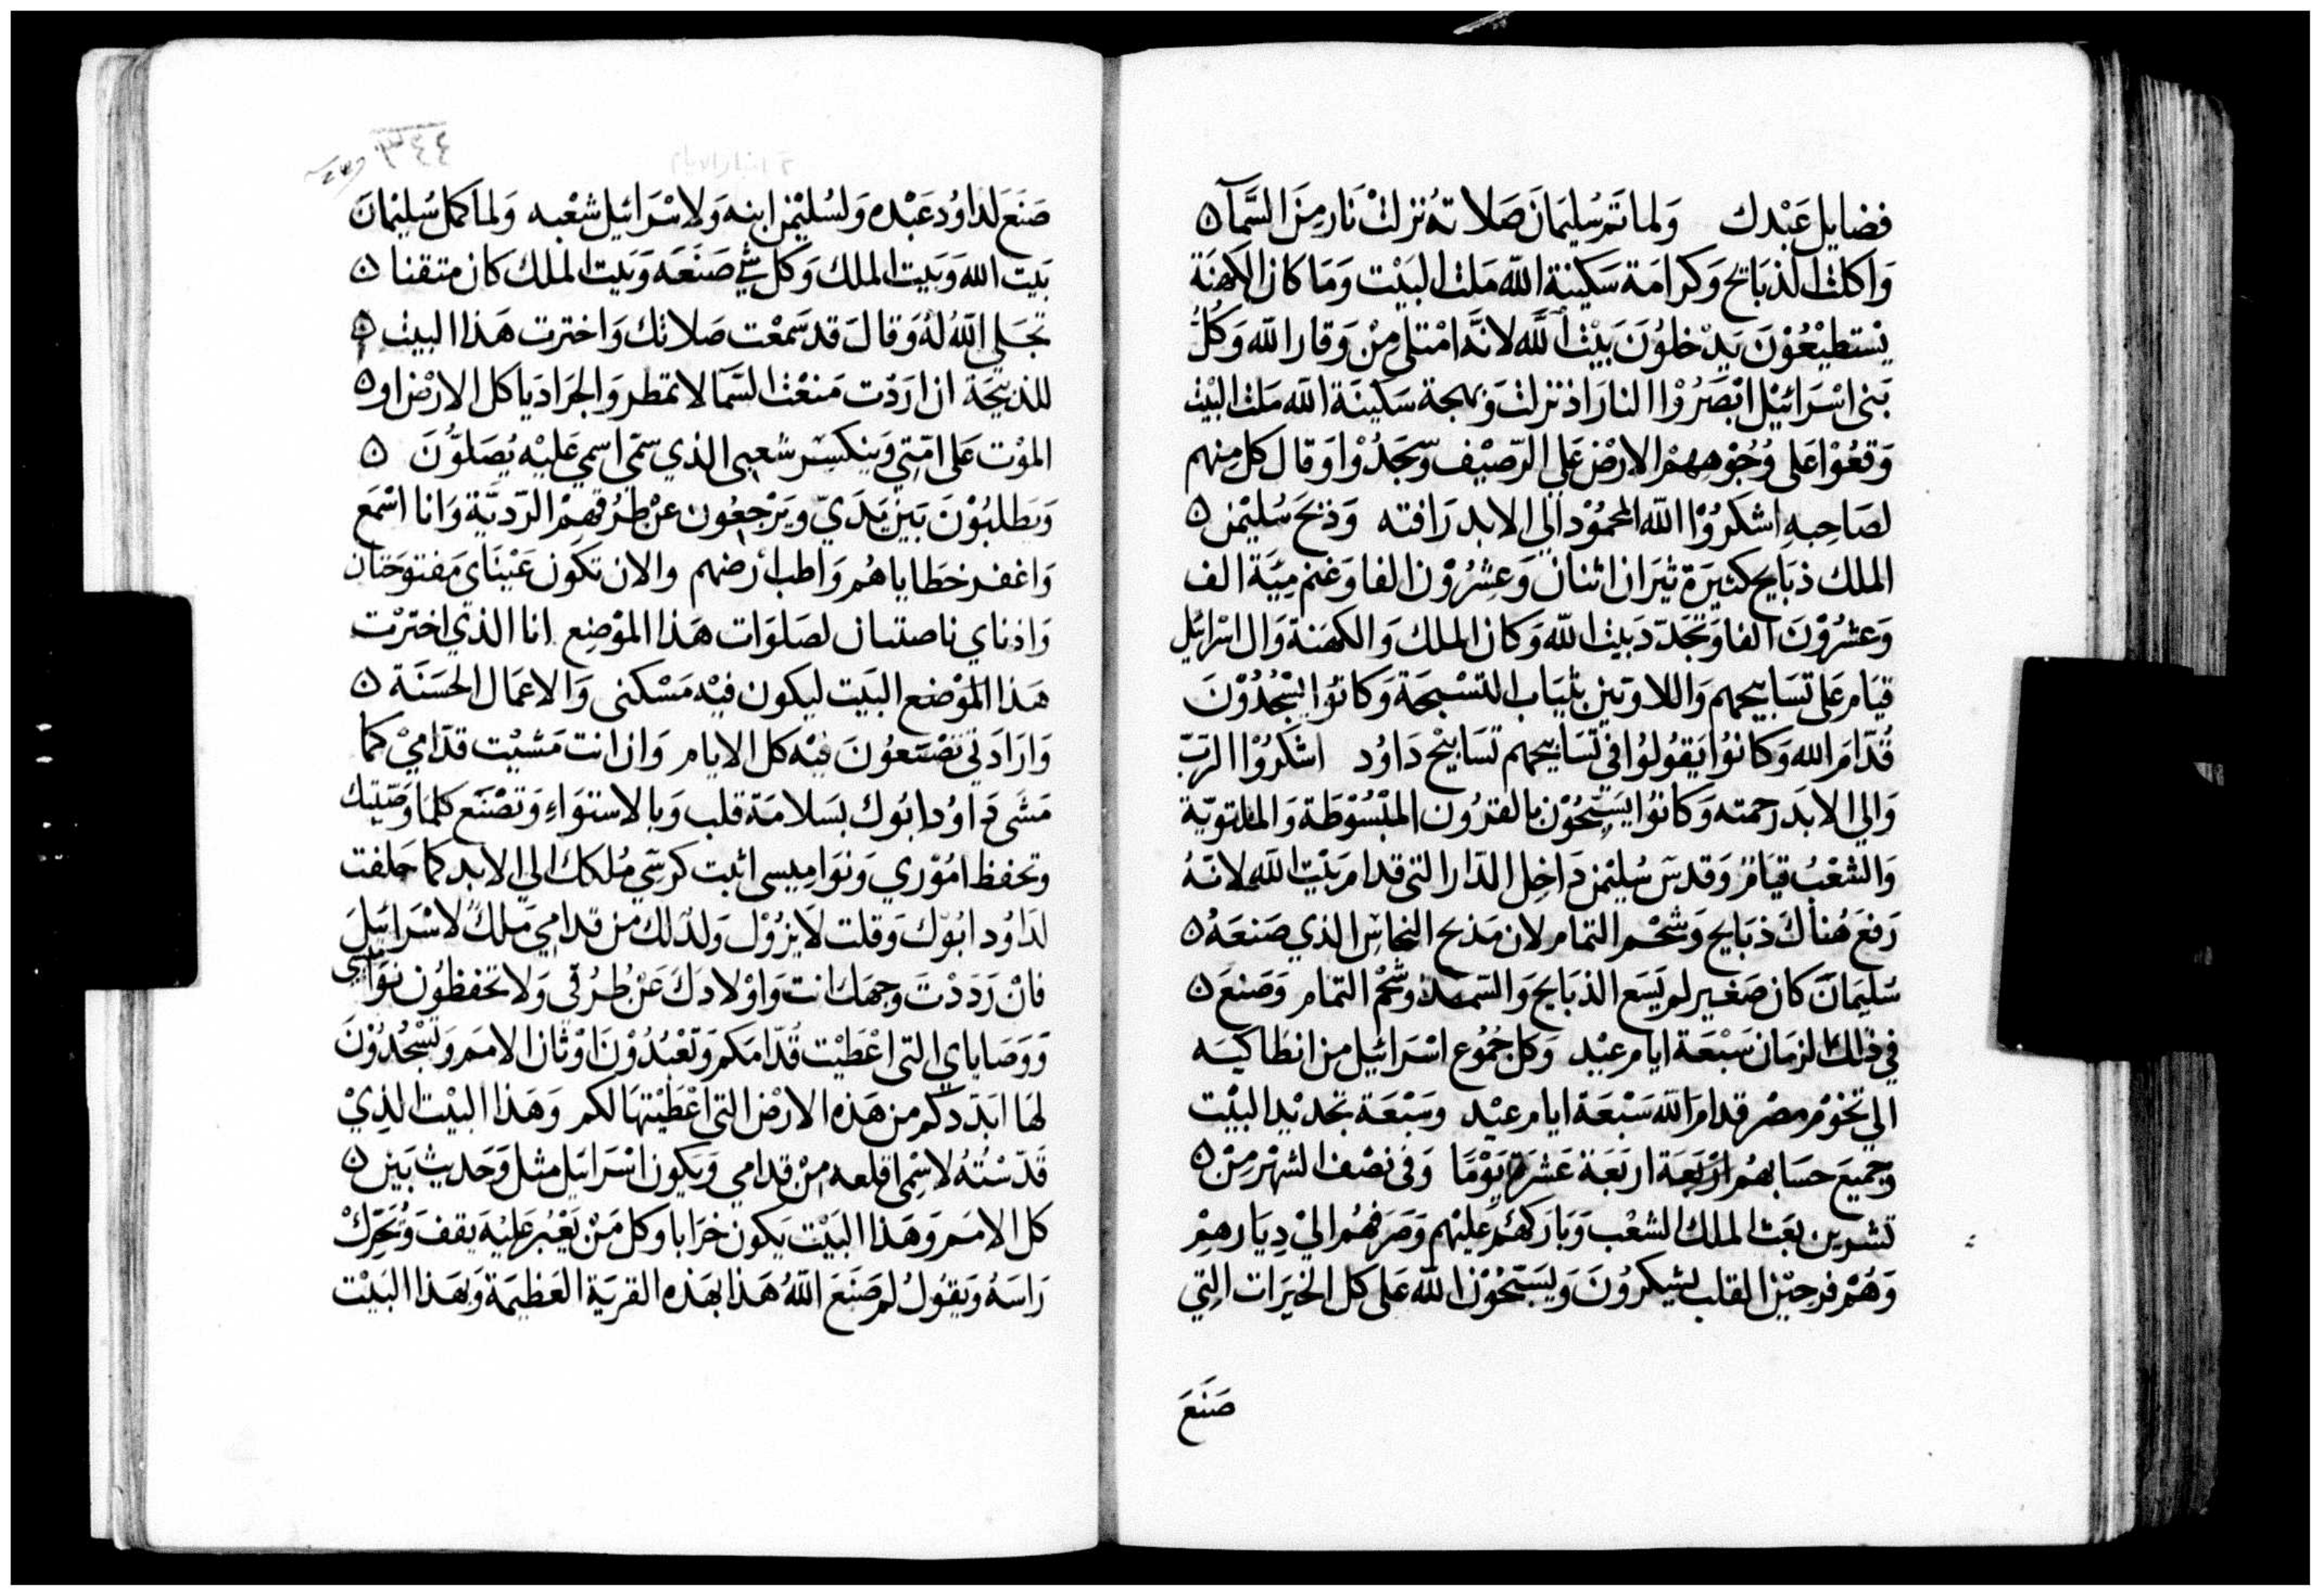 فضايل عَبْدك وَلما تم سُليمَان صَلاته نزلتْ نَار مِنَ السَّمآ ۞
وَاكلت الذبَايح وَكرامَة سَكينة الله مَلت البَيْت وَمَا كان الكهنَة
يسْتطيْعُوْنَ يَدْخلوُنَ بَيْتَ اللَّه لانَّه امْتلى مِنْ وَقار الله وَكُلُّ
بَنى اسْرَائيْل ابْصَرُوْا النار اذ نزلت وَبهجة سَكينَة الله مَلت البيْت
وَقعُوْا عَلى وُجُوْههِمْ الارْض عَلى الرّصيْف وسَّجَدُوْا وَقال كل منهم
لصَاحِبهِ اشكرُوْا اللّه المحمُوْد الى الابد رَافته وَذبَحَ سُليْمٰن ۞
الملك ذبَايح كثيرَة ثيَران اثنان وَعِشرُوْن الفا وَغنم مِئَية الف
وَعشرُوْنَ الفا وَتجَدّد بَيت اللّه وَكان الملك وَالكهنَة وَال اسْرائيل
قيَام عَلى تسَابيحهم وَاللاويّين بثيَاب التسْبحَة وَكانوُا يسْجُدُوْنَ
قُدّامَ الله وَكانوُا يَقوُلوُا في تسَابيحهم تسَابيْح دَاوُد اشكرُوْا الرَبّ
وَالي الابدَ رَحمته وَكانوُا يسَبّحُوْن بالقرُون المبْسُوْطَة وَالملتويّة
وَالشعْبُ قيَامٌ وَقدسَ سُليْمٰن دَاخِل الدّار التى قدام بَيْت اللّه لانّهُ
رَفعَ هُناكَ ذبَايح وَشحْم التمام لان مَذبح النحاس الذي صَنعَهُ ۞
سُليمَانَ كان صَغير لم يَسَع الذبَايح وَالسّمد وشحْم التمام وَصَنعَ ۞
في ذلك الزمَان سَبْعَة ايام عيْد وَكل جُمُوع اسْرَائيل من انطاكيَه
الي تخوْم مصْر قدام اللّه سَبْعَة ايام عيْد وسَبْعَة تجديْد البيْت
وَجميعَ حسَابهُم ارْبَعَة اربَعَة عَشرَة يَوْمًا وَفى نصْف الشهْر مِنْ ۞
تشرين بعَث الملك الشعْب وَبَاركهُم عَليْهم وَصَرفهُم الىْ دِيَارهِمْ
وَهُمْ فرحِيْن القلب يشكرُونَ وَيسَبّحُوْن اللّه عَلى كل الخيرَات التِي
صَنَعَ
٣٤٤
٢ اخبار الايام
صَنعَ لدَاوُد عَبْده وَلسُليْمٰن ابنه وَلاسْرَائيل شعْبه وَلما كمل سُليْمانَ
بَيت اللهَ وَبَيت الملك وَكل شيْ صَنَعَه وَبَيت الملك كان متقنا ۞
تجَلى اللّه لهُ وَقالَ قد سَّمعْت صَلاتك وَاخترت هَذا البيْت ۞
للذبيْحَة ان ارَدْت مَنعْت السَّمآ لا تمطر وَالجرَاد يَاكل الارْض او ۞
الموْت عَلى امّتِي وَينكسِر شعبى الذي سَمّي اسمي عَليْه يُصَلوُّنَ ۞
وَيَطلبُوْنَ بَينَ يَدَيّ وَيَرْجعُون عنْ طُرُقهِمْ الرّديَّة وَانا اسْمَع
وَاغفر خطاياهُم وَاطب ارضهم والان تكون عَيْنَاى مَفتوحَتان
وَاذناي ناصتان لصَلوَات هَذا الموْضِع انا الذي اخترْت
هَذا الموْضع البَيت ليكون فيْه مَسْكنى وَالاعمَال الحسَنَة ۞
وَارَادَتي تصْنَعُونَ فيْه كل الايام وَان انت مَشيْت قدّاميْ كما
مَشَى دَاوُد ابُوك بسَلامَة قلب وَبالاستوَاءِ وَتصْنَع كلمَا وَصّيتك
وتحفظ امُوْري وَنوَاميسى اثبت كرسّي مُلكك الي الابد كما حَلفت
لدَاوُد ابُوْك وَقلت لَا يزُوْل وَلدَ لك من قدامي مَلكً لاسْرَائيلَ
فانْ رَدَدْتَ وَجهَك انت وَاوْلادكَ عَنْ طُرُقى وَلا تحفظوُن نوَاميسى
وَوَصَاياي التى اعْطَيْت قُدّامَكم وَتعْبُدُوْنَ اوْثان الامَم وَتسْجُدُوْنَ
لهَا ابَدّدكم من هَذه الارْض التى اعْطيْتهَا لكم وَهَذا البيْت الذِيْ
قَدّسْتُهُ لاسْمى اقلعه مِنْ قدامي وَيكون اسْرَائيل مثل وَحَديث بَين ۞
كل الامَم وَهَذا البَيْت يَكون خَرَابا وَكل مَنْ يَعْبُر عَليْهَ يقفَ وَيُحَرّكْ
رَاسَهُ وَيَقوُلُ لم صَنَعَ اللّهُ هَذا بهَذه القريَة العَظيمَة وَبهَذا البَيْت